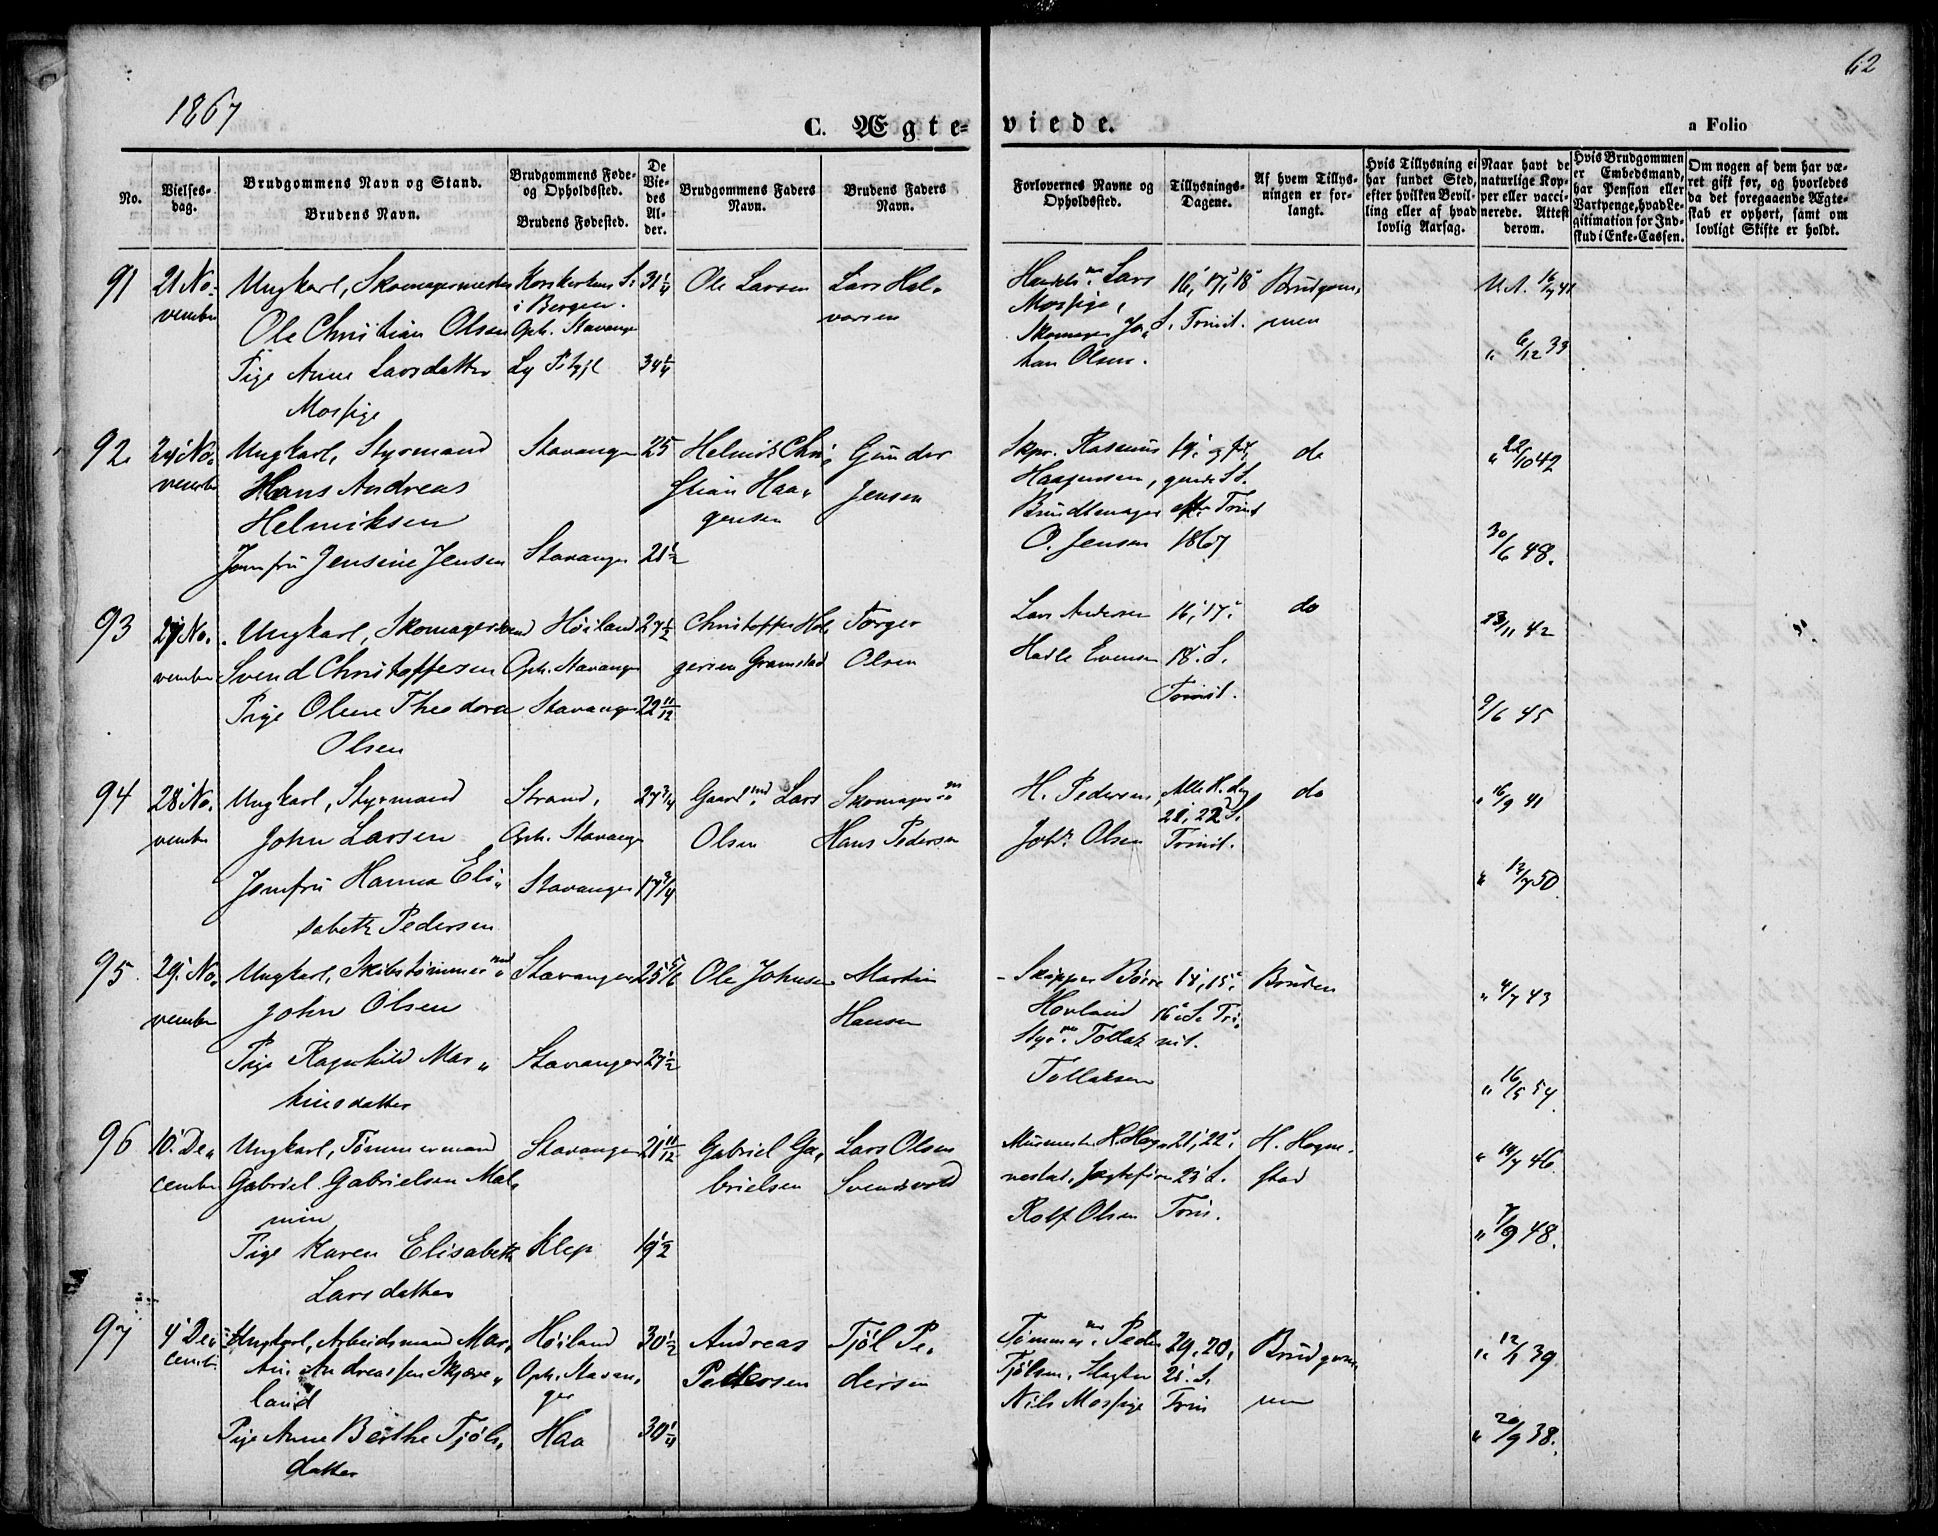 1867
62
C. Ægte-
viede.
a Folio
No.
Vielses-
dag.
Brudgommens Navn og Stand.
Brudens Navn.
Brudgommens Føde-
og Opholdssted.
Brudens Fødested.
De
Vie-
des
Al-
der.
Brudgommens Faders
Navn.
Brudens Faders
Navn.
Forlovernes Navne og
Opholdssted.
Tillysnings-
Dagene.
Af hvem Tillys-
ningen er for-
langt.
Hvis Tillysning ei
har fundet Sted,
efter hvilken Bevil-
ling eller af hvad
lovlig Aarsag.
Naar havt de
naturlige Kop-
per eller vacci-
nerede. Attest
derom.
Hvis Brudgommen
er Embedsmand,
har Pension eller
Vartpenge, hvad Le-
gitimation for Ind-
skud i Enke-Cassen.
Om nogen af dem har væ-
ret gift før, og hvorledes
da det foregaaende Ægte-
skab er ophørt, samt om
lovligt Skifte er holdt.
91
21 No-
vember
Ungkarl, Skomagermester
Ole Christian Olsen
Pige Anne Larsdatter
Mossige
Korskirkens S.
i Bergen.
Oph. Stavanger
Ly
31 1/4
34 1/4
Ole Larsen
Lars Hal-
vorsen
Lars
Mossige,
Skomager Jo-
han Olsen.
16, 17, 18
S. Trinit.
Brudgom-
men
16/9 41
" 6/12 33
92
24 No-
vember
Ungkarl, Styrmand
Hans Andreas
Helmiksen
Jomfru Jensine Jensen
Stavanger
Stavanger
25
21 1/2
Helmik Chri-
stian Haa-
gensen
Gunder
Jensen
Skpr. Rasmus
Haagensen,
O. Jensen
19, og
S.
eft. Trinit
1867
do
" 22/10 42
30/6 48.
93
27 No-
vember
Ungkarl, Skomagersvend
Svend Christoffersen
Pige Oline Theodora
Olsen
Høiland
Oph. Stavanger
Stavanger
27 1/2
22 11/12
Christoffer Hol-
gersen Gramstad
Torger
Olsen
Lars Andersen
Hadle Evensen
16, 17,
18. S.
Trinit.
do
23/11 42
9/6 45
94
28 No-
vember
Ungkarl, Styrmand
John Larsen
Jomfru Hanna Eli-
sabeth Pedersen
Strand,
Oph. Stavanger
Stavanger
27 3/4
17 3/4
Gaardmd. Lars
Olsen
Skomager
Hans Pedersen
H. Pedersen
Joh. Olsen
Alle H. Dg
21, 22 S.
Trinit.
do
" 16/9 41
" 12/7 50.
95
29. No-
vember
Ungkarl, Skibstømmermd.
John Olsen
Pige Ragnhild Mar-
tinsdatter
Stavanger
Stavanger
25 5/6
Ole Johnsen
Martin
Hansen
Skipper Børre
Hovland
Tollak
Tollaksen
14, 15,
16. S. Tri-
nit.
Bruden
" 4/7 43
" 16/5 54.
96
10. De-
cember
Ungkarl, Tømmermand
Gabriel Gabrielsen Mal-
min
Pige Karen Elisabeth
Larsdatter
Stavanger
Klep
21 11/12
19 1/2
Gabriel Ga-
brielsen
Lars Olsen
Svendsvold
Murmester H. Hog-
nestad,
Rolf Olsen
21, 22,
23 S.
Trin.
H. Hogne-
stad
" 14/7 46.
" 7/9 48.
97
4 De-
cember
Ungkarl, Arbeidsmand Mar-
tin Andreassen Skjæve-
land
Pige Anne Berthe Tjøls-
datter
Høiland
Oph. Stavan-
ger
Haa
30 1/2
30 1/4
Andreas
Pettersen
Tjøl Pe-
dersen
Peder
Tjølsen, Slagter
Nils Mossige
20,
21. S.
Trin
Brudgom-
men
39
" 20/9 38.